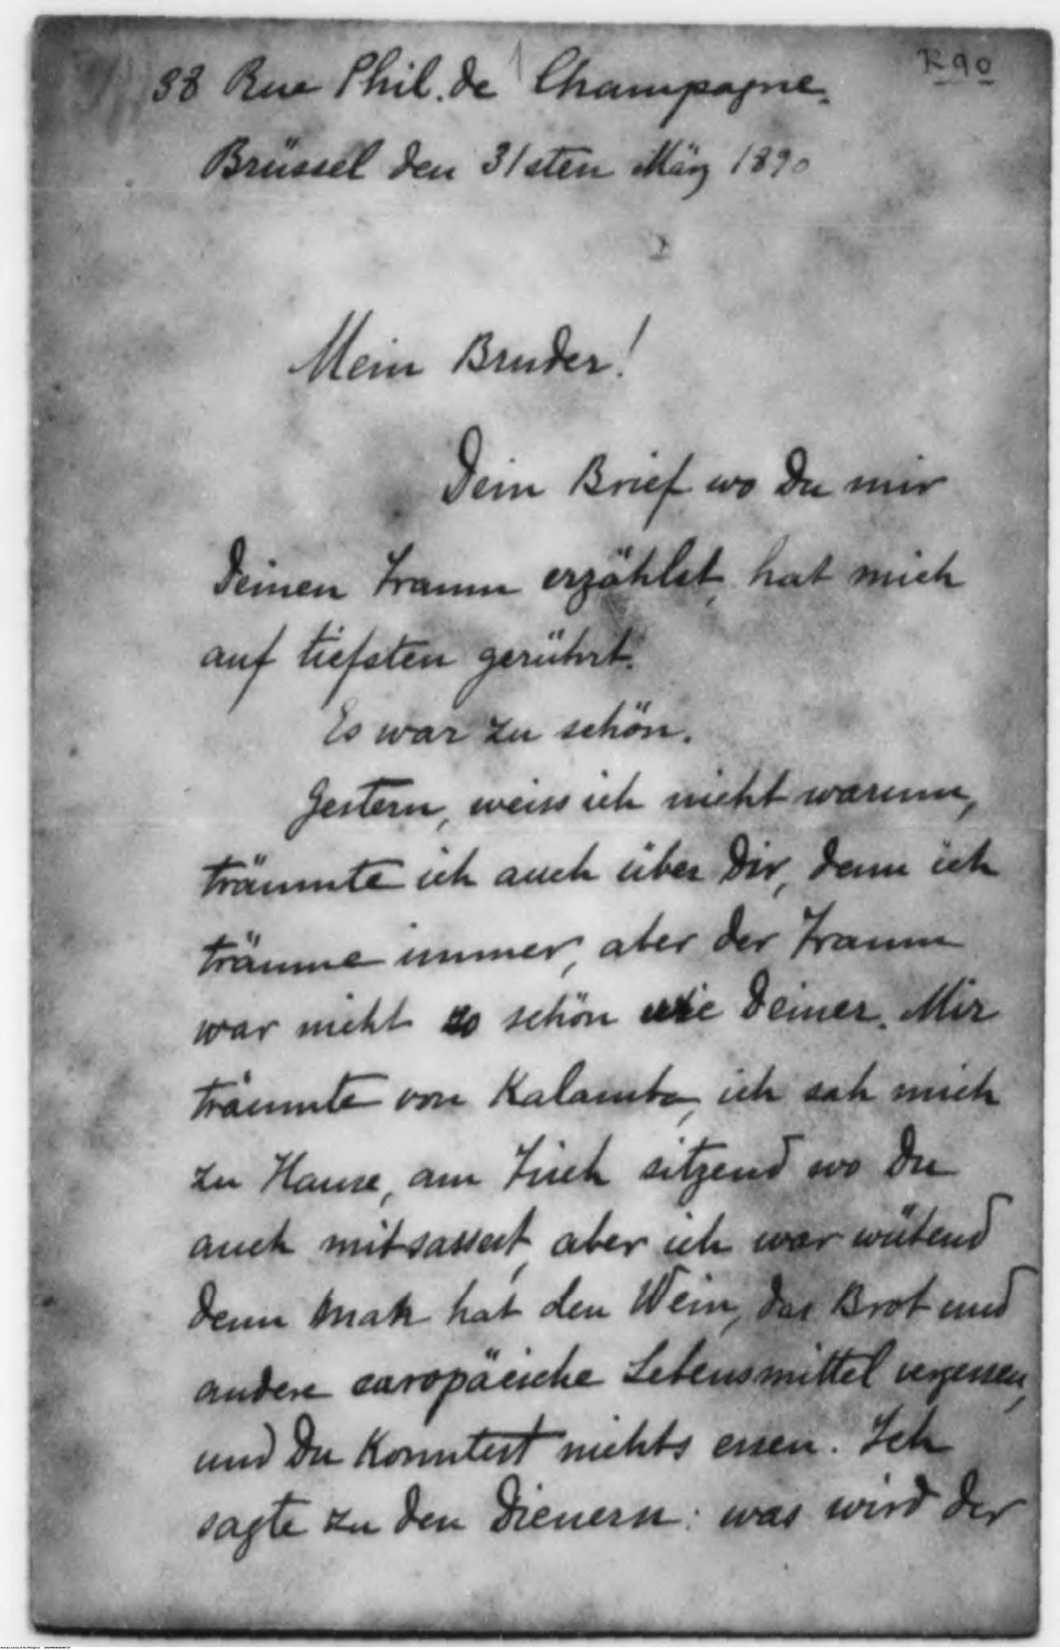 38 Rue Phil. de Champagne.
K 90
Brüssel den 31sten März 1890
Mein Bruder!
Dein Brief wo Du mir
Deinen Traum erzählst, hat mich
auf tiefsten gerührt.
Es war zu schön.
Gestern, weiss ich nicht warum,
träumte ich auch über Dir, denn ich
träume immer, aber der Traum
war nicht so schön wie Deiner. Mir
träumte von Kalamba, ich sah mich
zu Hause, am Tisch sitzend wo Du
auch mitsassest, aber ich war wütend
denn man hat den Wein, das Brot und
andere europäische Lebensmittel vergessen,
und Du konntest nichts essen. Ich
sagte zu den Dienern: was wird der